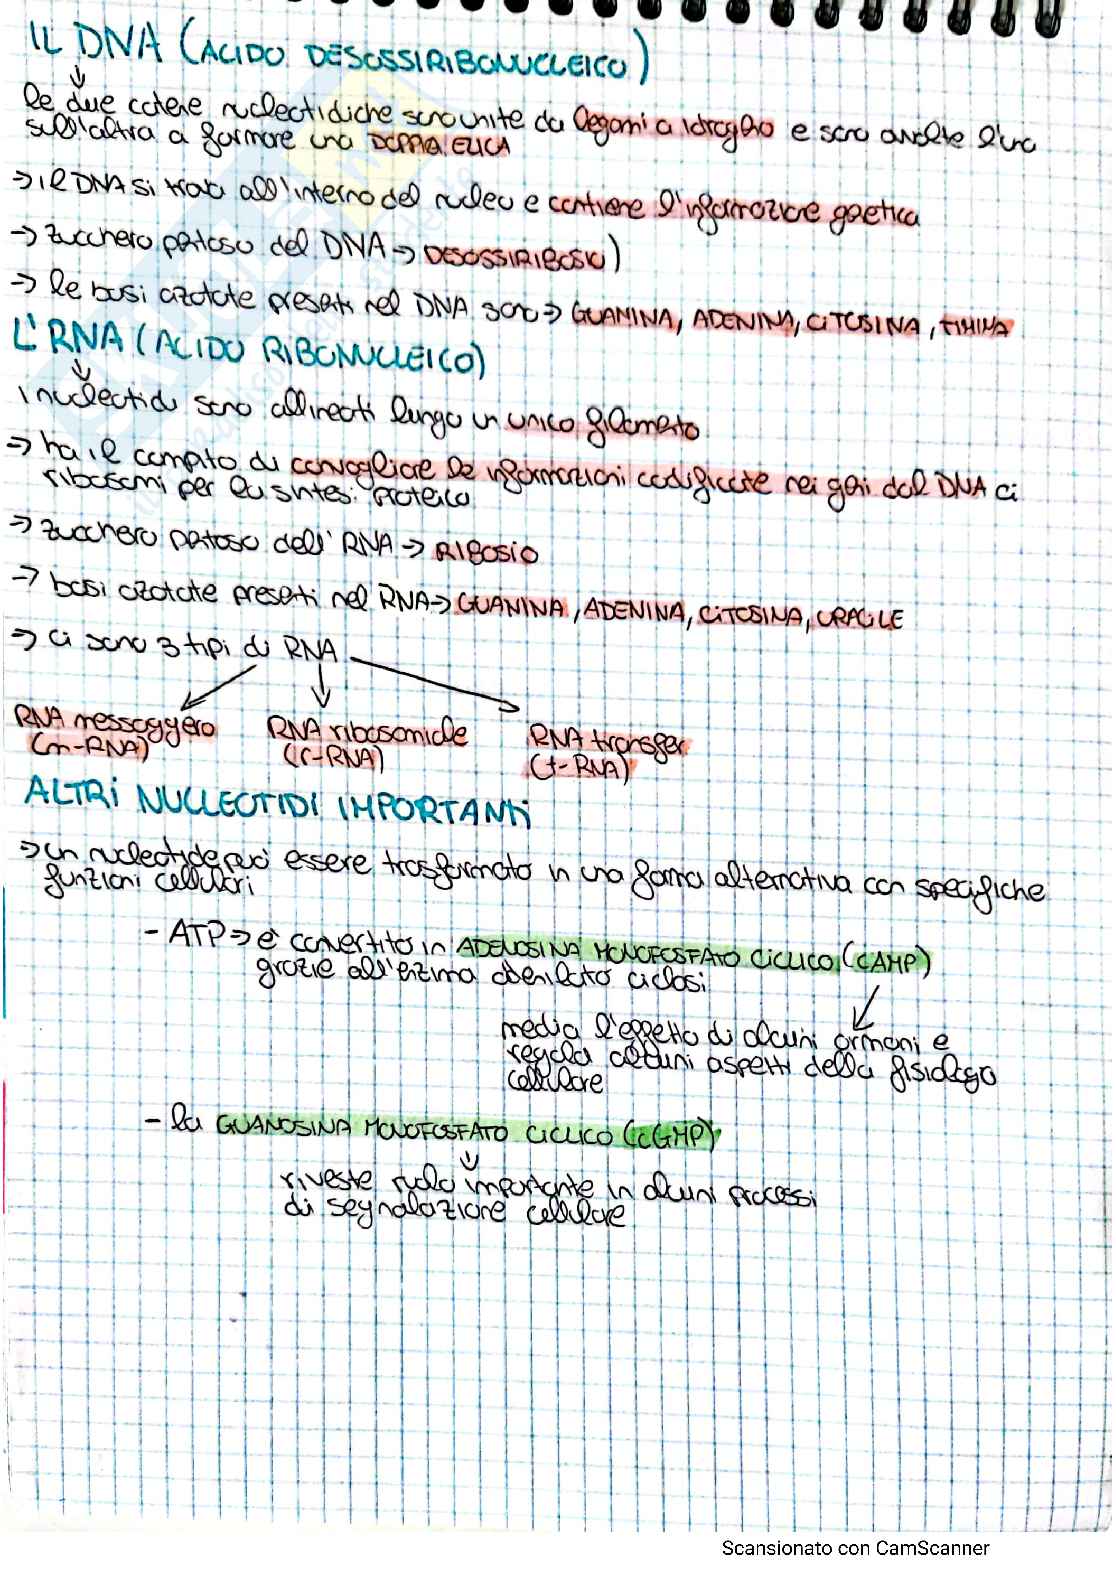 IL DNA (ACIDO DESOSSIRIBONUCLEICO)
le due catene nucleotidiche sono unite da legami a idrogeno e sono avvolte l'una
sull'altra a formare una DOPPIA ELICA
→ il DNA si trova all'interno del nucleo e contiene l'informazione genetica
→ zucchero pentoso del DNA → DESOSSIRIBOSIO)
→ le basi azotate presenti nel DNA sono → GUANINA, ADENINA, CITOSINA, TIMINA
L'RNA (ACIDO RIBONUCLEICO)
i nucleotidi sono allineati lungo un unico filamento
→ ha il compito di convogliare le informazioni codificate nei geni dal DNA ai
ribosomi per la sintesi proteica
→ zucchero pentoso dell'RNA → RIBOSIO
→ basi azotate presenti nel RNA → GUANINA, ADENINA, CITOSINA, URACILE
→ ci sono 3 tipi di RNA
RNA messaggero RNA ribosomiale RNA transfer
(m-RNA) (r-RNA) (t-RNA)
ALTRI NUCLEOTIDI IMPORTANTI
→ un nucleotide può essere trasformato in una forma alternativa con specifiche
funzioni cellulari
- ATP → è convertito in ADENOSINA MONOFOSFATO CICLICO (cAMP)
grazie all'enzima adenilato ciclasi
media l'effetto di alcuni ormoni e
regola alcuni aspetti della fisiologia
cellulare
- la GUANOSINA MONOFOSFATO CICLICO (cGMP)
riveste ruolo importante in alcuni processi
di segnalazione cellulare
Scansionato con CamScanner